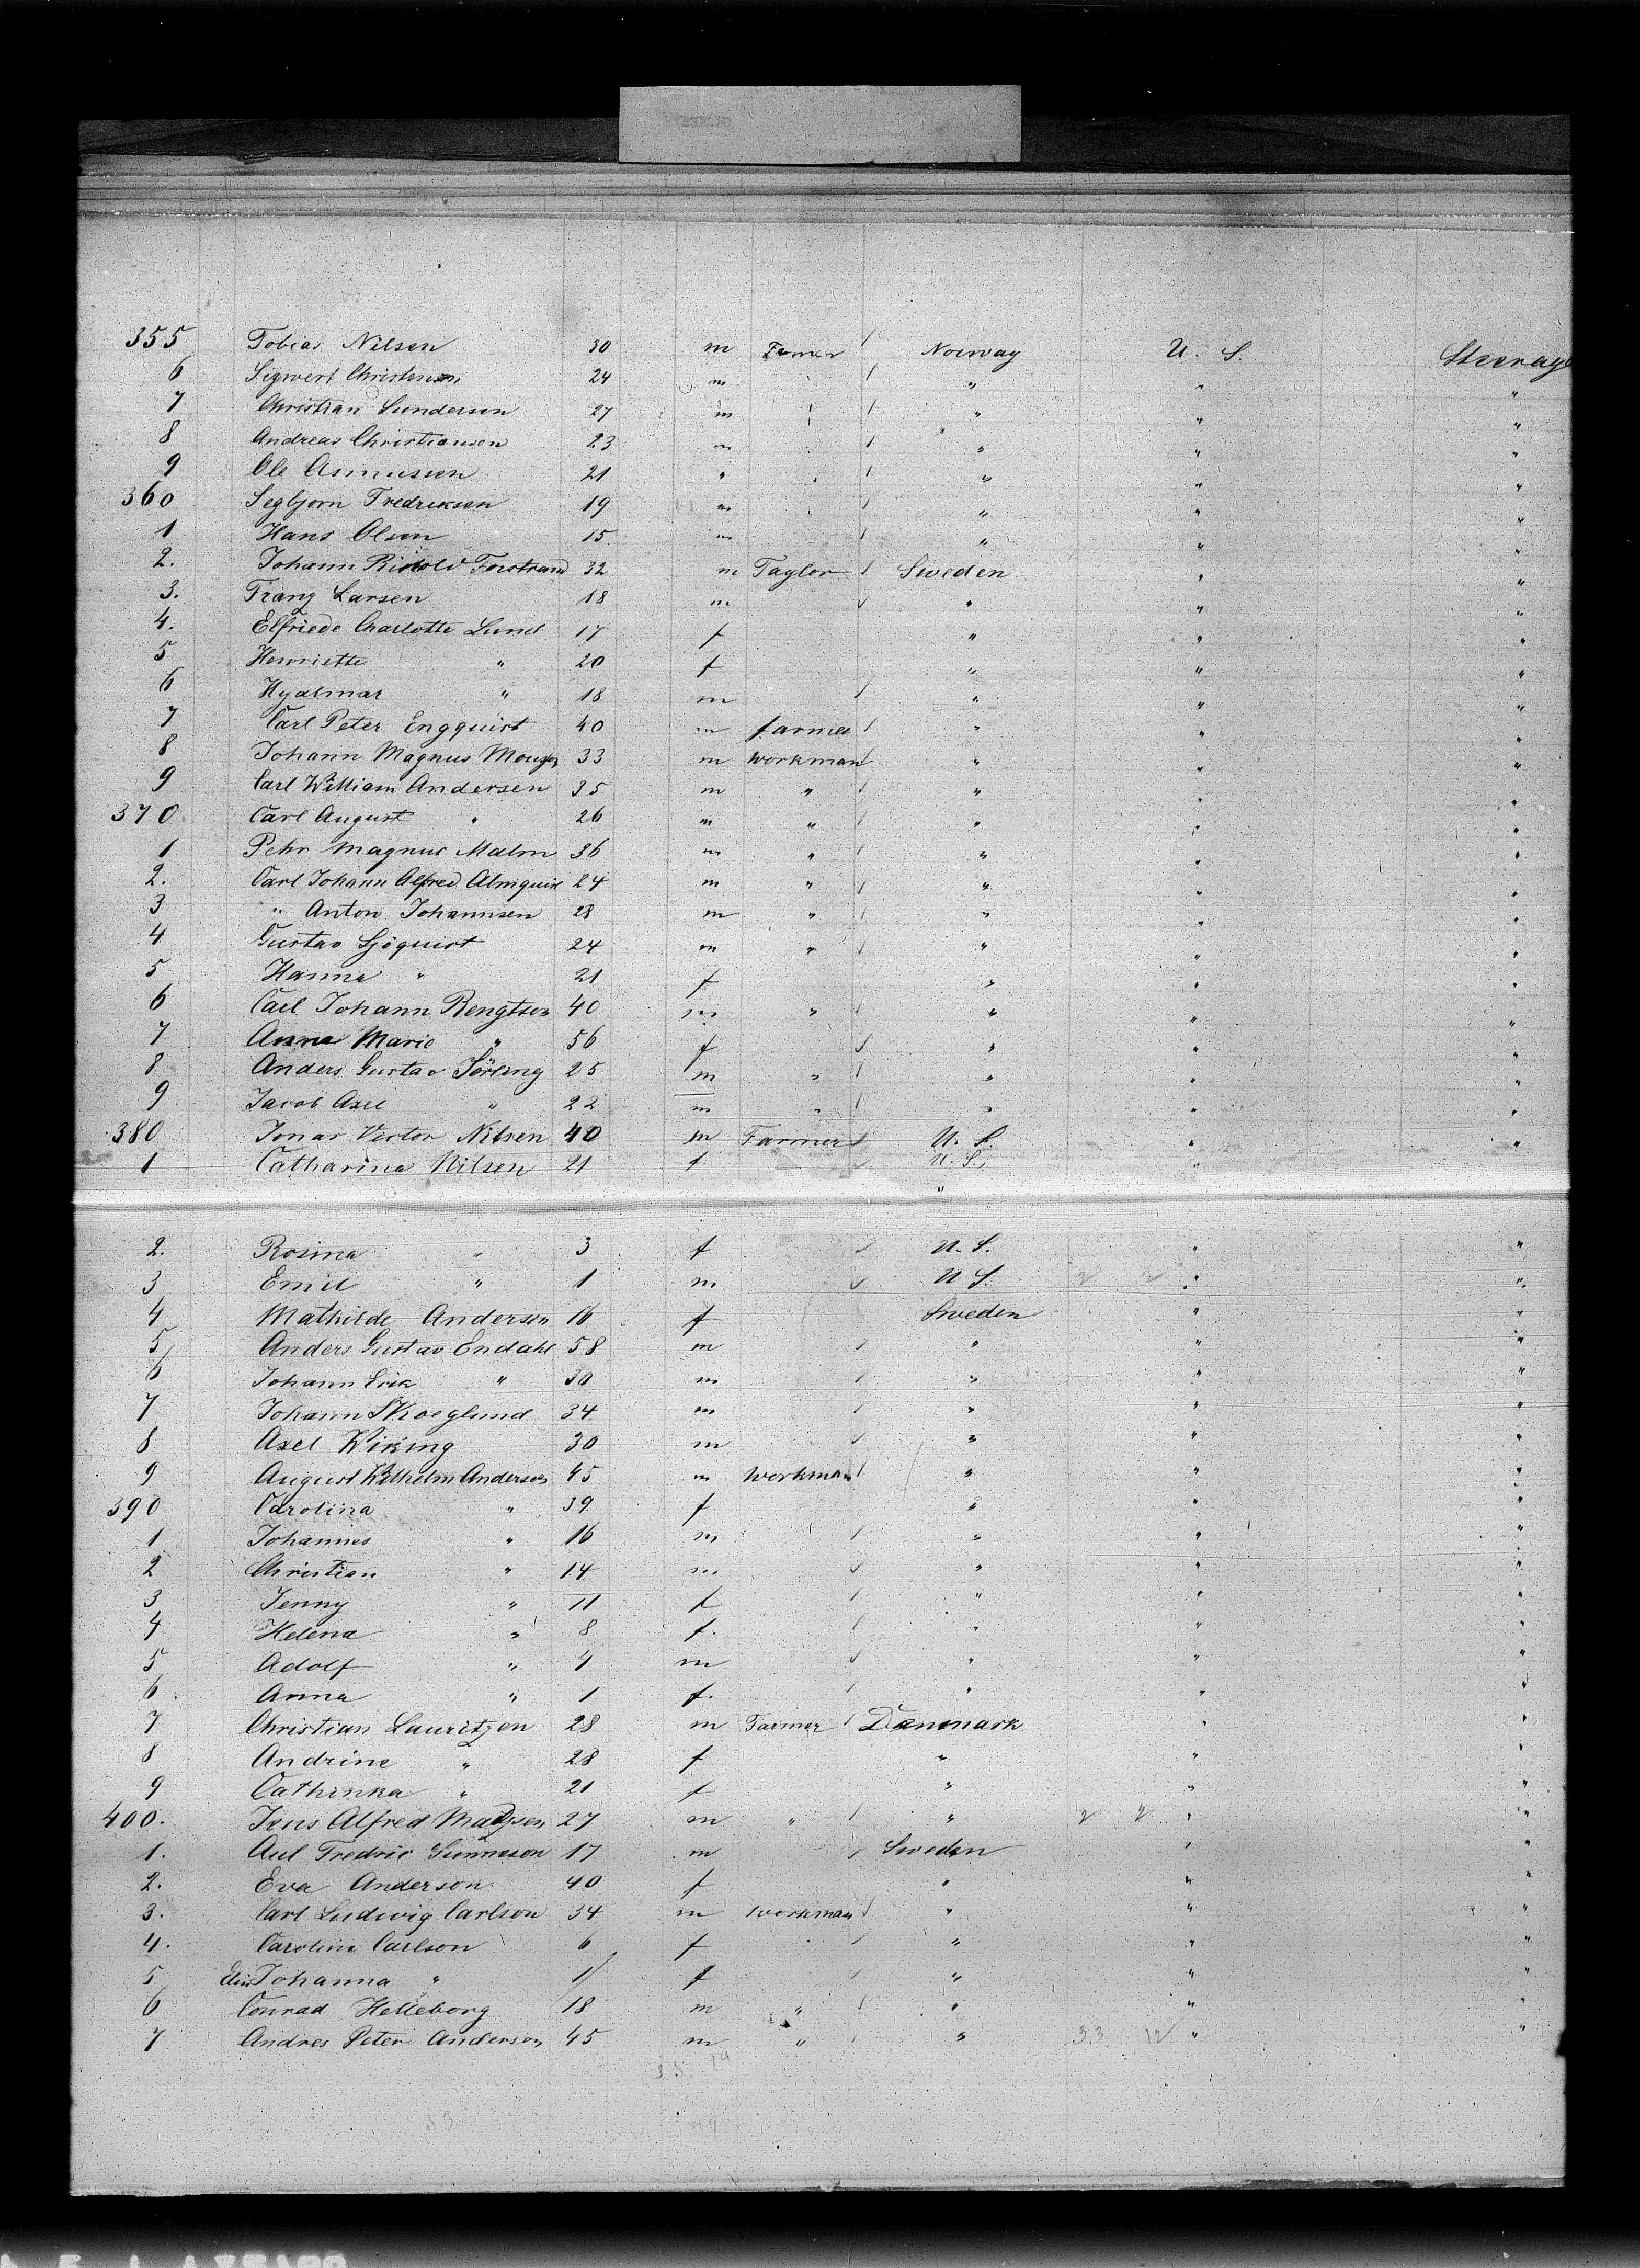 355 Tobias Nilsen 30 m Farmer / Norway U. S. Steerage
6 Sigwert Christensen 24 m " / " " "
7 Christian Sunderson 27 m " / " " "
8 Andreas Christiansen 23 m " / " " "
9 Ole Asmussen 21 " " / " " "
360 Segbjorn Fredriksen 19 m " / " " "
1 Hans Olsen 15 m / " " "
2. Johann Forstrand 32 m Taylor / Sweden " "
3. Franz Larsen 18 m / " " "
4. Elfriede Charlotte Lund 17 f " " "
5 Henriette " 20 f " " "
6 Hyalmar " 18 m / " " "
7 Carl Peter Engquist 40 m farmer / " " "
8 Johann Magnus 33 m workman / " " "
9 Carl William Andersen 35 m " / " " "
370 Carl August " 26 m " / " " "
1 Pehr Magnus Malm 36 m " / " " "
2. Carl Johann Alfred Almquist 24 m " / " " "
3 " Anton Johannsen 28 m " / " " "
4 Gustav Sjöquist 24 m " / " " "
5 Hanna " 21 f " " "
6 Carl Johann Bengtsen 40 m " / " " "
7 Anna Marie " 56 f / " " "
8 Anders Gustav Sörling 25 m " / " " "
9 Jacob Axel " 22 m " / " " "
380 Jonas Victor Nilsen 40 m Farmer / U. S. " "
1 Catharina Nilsen 21 f / U. S. " "
"
2. Rosina " 3 f / U. S. " "
3 Emil " 1 m / U S. 2 2 " "
4 Mathilde Anderson 16 f Sweden " "
5 Anders Gustav Endahl 58 m / " " "
6 Johann Erik " 30 m / " " "
7 Johann Skoeglund 34 m / " " "
8 Axel Wiking 30 m / " " "
9 August Wilhelm Anderson 45 m Workman / " " "
390 Carolina " 39 f " " "
1 Johannes " 16 m / " " "
2 Christian " 14 m / " " "
3 Jenny " 11 f / " " "
4 Helena " 8 f. / " " "
5 Adolf " 4 m / " " "
6. Anna " 1 f. / " " "
7 Christian Lauritzen 28 m Farmer / Denmark " "
8 Andrine " 28 f " " "
9 Cathinka " 21 f " " "
400. Jens Alfred Madsen 27 m " / " 2 2 " "
1. Fredric Gunnason 17 m / Sweden " "
2. Eva Anderson 40 f " " "
3. Carl Ludwig Carlson 34 m workman / " " "
4. Carolina Carlson 6 f / " " "
5 Elin Johanna " 1/ f / " " "
6 Conrad Helleborg 18 m " / " " "
7 Andres Peter Anderson 45 m " / " 33 12 " "